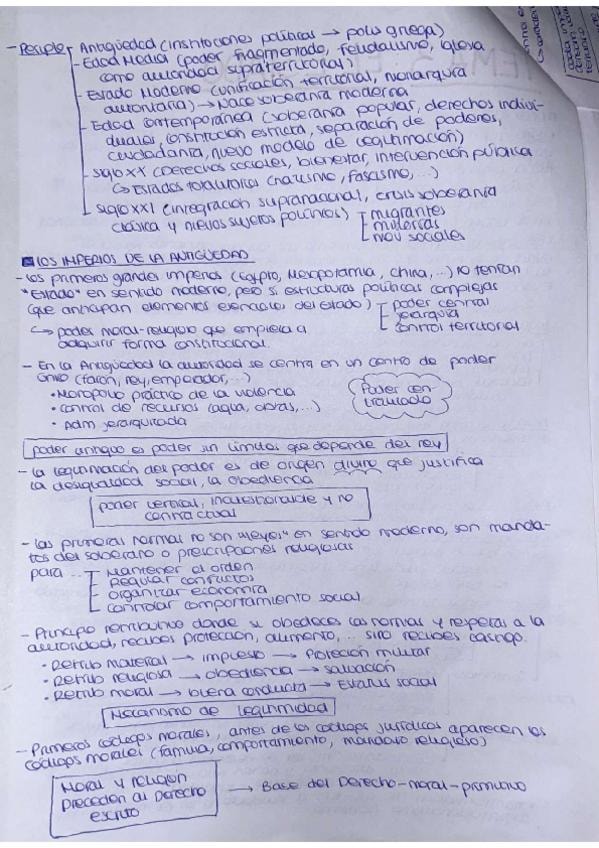 - Periplo
Antigüedad (instituciones políticas → polis griega)
- Edad Media (poder fragmentado, feudalismo, iglesia
como autoridad supraterritorial)
- Estado Moderno (unificación territorial, monarquía
autoritaria) → Nace soberanía moderna
- Edad contemporánea (soberanía popular, derechos indivi-
duales, constitución estricta, separación de poderes,
ciudadanía, nuevo modelo de legitimación)
- Siglo XX (derechos sociales, bienestar, intervención pública
↳ Estados totalitarios (nazismo, fascismo, ...)
- Siglo XXI (integración supranacional, crisis soberanía
clásica y nuevos sujetos políticos)
migrantes
minorías
mov sociales
LOS IMPERIOS DE LA ANTIGÜEDAD
- Los primeros grandes imperios (Egipto, Mesopotamia, China, ...) no tenían
"Estado" en sentido moderno, pero sí estructuras políticas complejas
(que anticipan elementos esenciales del estado)
poder central
jerarquía
control territorial
↳ poder moral-religioso que empieza a
adquirir forma constitucional.
- En la Antigüedad la autoridad se centra en un centro de poder
único (faraón, rey, emperador, ...)
• Monopolio práctico de la violencia
• control de recursos (agua, obras, ...)
• Adm jerarquizada
Poder cen-
tralizado
poder antiguo es poder sin límites que depende del rey
- La legitimación del poder es de origen divino que justifica
la desigualdad social, la obediencia
poder vertical, incuestionable y no
contractual
- Las primeras normas no son "leyes" en sentido moderno, son manda-
tos del soberano o prescripciones religiosas
para ...
Mantener el orden
Regular conflictos
organizar economía
controlar comportamiento social
- Principio retributivo donde si obedeces las normas y respetas a la
autoridad, recibes protección, alimento, ... sino recibes castigo.
• Retrib material → impuesto → Protección militar
• Retrib religiosa → obediencia → salvación
• Retrib moral → buena conducta → Estatus social
Mecanismo de legitimidad
- Primeros códigos morales, antes de los códigos jurídicos aparecen los
códigos morales (familia, comportamiento, mandato religioso)
Moral y religión
preceden al Derecho
escrito
→ Base del Derecho-moral-primitivo